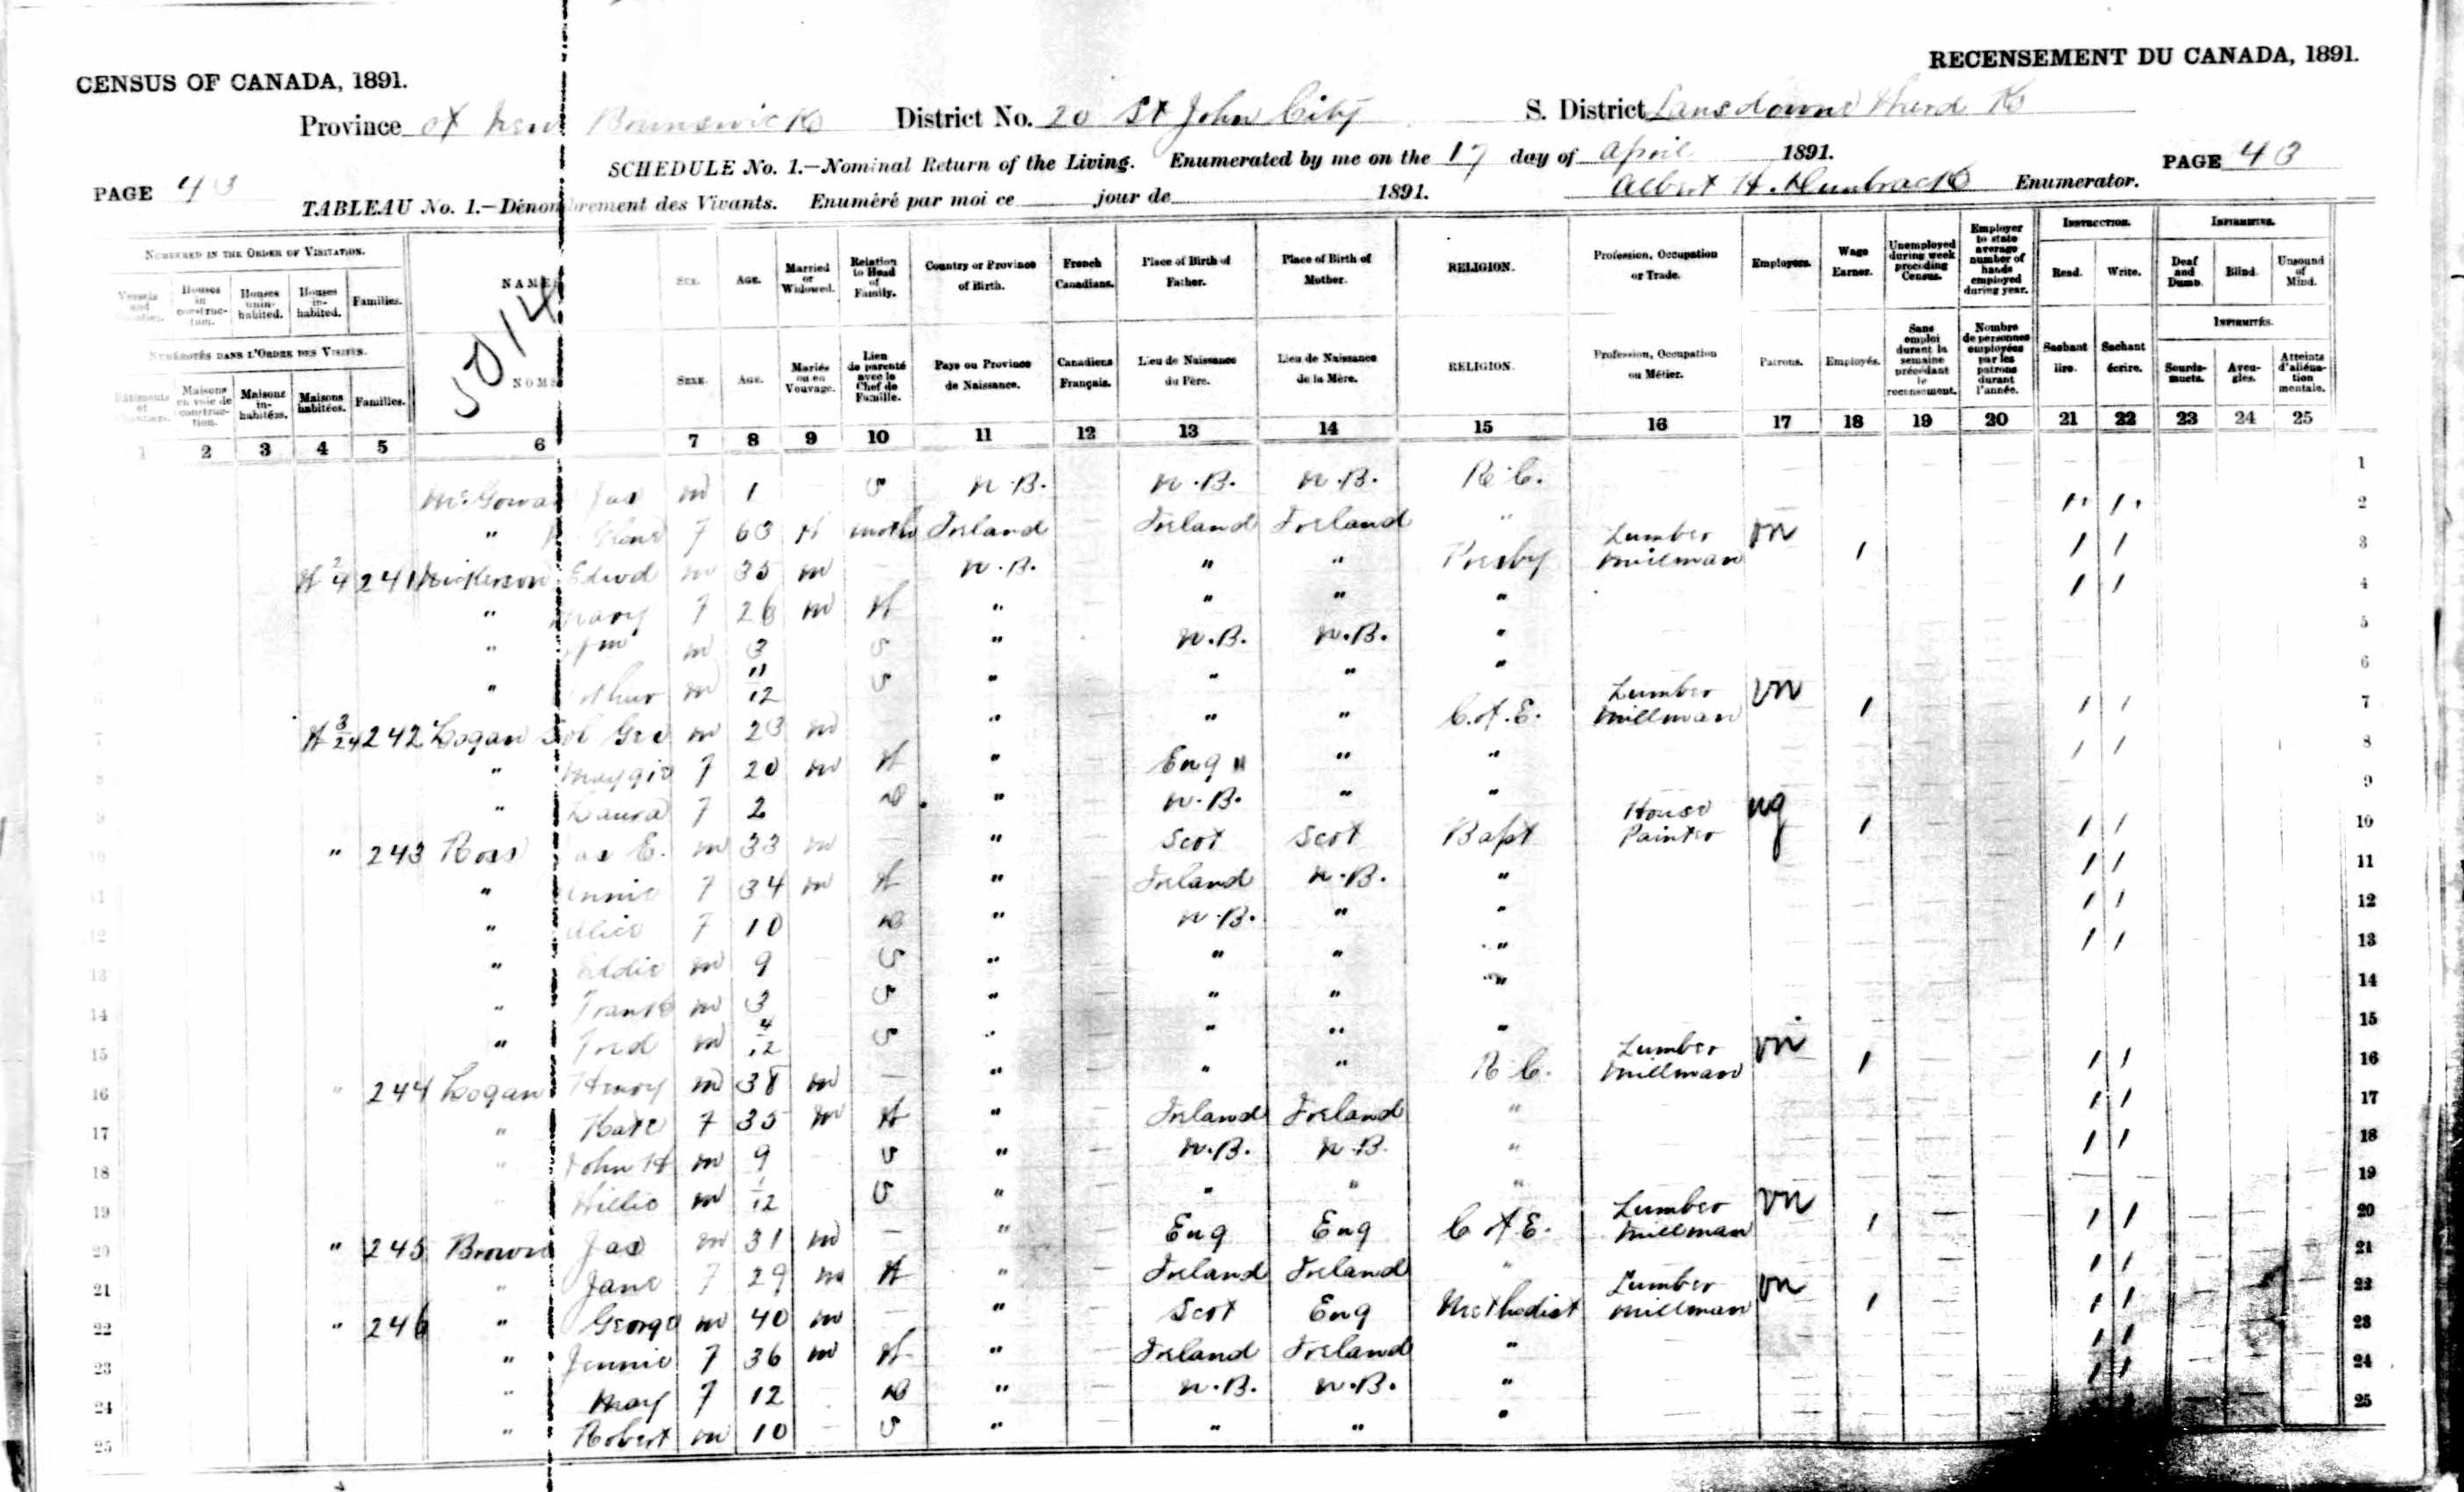 CENSUS OF CANADA, 1891.
RECENSEMENT DU CANADA, 1891.
Province of New Brunswick District No. 20 St John City S. District Lansdowne Ward K
SCHEDULE No. 1.—Nominal Return of the Living. Enumerated by me on the 17 day of April 1891.
PAGE 43 PAGE 43
TABLEAU No. 1.—Dénombrement des Vivants. Enuméré par moi ce jour de 1891. Albert H. Enumerator.
NUMBERED IN THE ORDER OF VISITATION.
Vessels and Shanties. Houses in construction. Houses uninhabited. Houses inhabited. Families. NAMES SEX. AGE. Married or Widowed. Relation to Head of Family. Country or Province of Birth. French Canadians. Place of Birth of Father. Place of Birth of Mother. RELIGION. Profession, Occupation or Trade. Employers. Wage Earner. Unemployed during week preceding Census. Employer to state average number of hands employed during year. INSTRUCTION. Read. Write. INFIRMITIES. Deaf and Dumb. Blind. Unsound of Mind.
5014
NUMÉROTÉS DANS L'ORDRE DES VISITES.
Bâtiments et Chantiers. Maisons en voie de construction. Maisons inhabitées. Maisons habitées. Familles. NOMS SEXE. AGE. Mariés ou en Veuvage. Lien de parenté avec le Chef de Famille. Pays ou Province de Naissance. Canadiens Français. Lieu de Naissance du Père. Lieu de Naissance de la Mère. RELIGION. Profession, Occupation ou Métier. Patrons. Employés. Sans emploi durant la semaine précédant le recensement. Nombre de personnes employées par les patrons durant l'année. Sachant lire. Sachant écrire. INFIRMITÉS. Sourds-muets. Aveugles. Atteints d'aliénation mentale.
1 2 3 4 5 6 7 8 9 10 11 12 13 14 15 16 17 18 19 20 21 22 23 24 25
McGowan Jas m 1 S N.B. N.B. N.B. R.C. 1
" F 63 W moth Ireland Ireland Ireland " 1 1 2
W 2/4 241 Edwd m 35 m — N.B. " " Presby Lumber Millman m 1 1 1 3
" Mary F 26 m W " " " " 1 1 4
" Wm m 3 S " N.B. N.B. " 5
6 " Arthur m 11/12 S " " " " 6
7 W 3/24 242 Logan Geo m 23 m " " " C. of E. Lumber Millman m 1 1 1 7
8 " Maggie F 20 m W " Eng " " " 1 1 8
9 " Laura F 2 D " N.B. " " 9
10 " 243 Ross Jas E. m 33 m — " Scot Scot Bapt House Painter ng 1 1 1 10
11 " Annie F 34 m W " Ireland N.B. " 1 1 11
12 " Alice F 10 D " N.B. " " 1 1 12
13 " Eddie m 9 S " " " " 1 1 13
14 " Frank m 3 S " " " " 14
15 " Fred m 4/12 S " " " " 15
16 " 244 Logan Henry m 38 m — " " " R.C. Lumber Millman m 1 1 1 16
17 " Kate F 35 m W " Ireland Ireland " 1 1 17
18 " John H m 9 S " N.B. N.B. " 1 1 18
19 " Willie m 1/12 S " " " " 19
20 " 245 Brown Jas m 31 m — " Eng Eng C of E. Lumber Millman m 1 1 1 20
21 " Jane F 29 m W " Ireland Ireland " 1 1 21
22 " 246 " George m 40 m — " Scot Eng Methodist Lumber Millman m 1 1 1 22
23 " Jennie F 36 m W " Ireland Ireland " 1 1 23
24 " May F 12 D " N.B. N.B. " 1 1 24
25 " Robert m 10 S " " " " 25